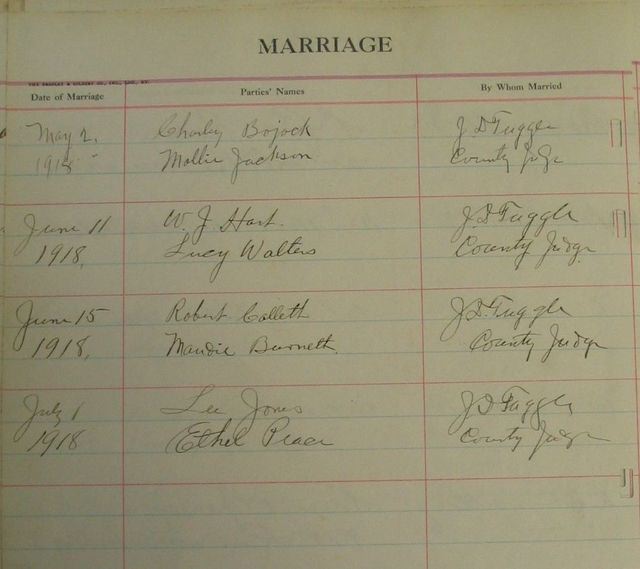 MARRIAGE
Date of Marriage
Parties' Names
By Whom Married
May 2,
1918
Charley Bojock
Mollie Jackson
J D Tuggle
County Judge
June 11
1918,
W. J. Hart.
Lucy Walters
J. D Tuggle
County Judge
June 15
1918,
Robert Colleth
Maudie Burnett.
J D. Tuggle
County Judge
July 1
1918
Lee Jones
Ethel
J D Tuggle
County Judge